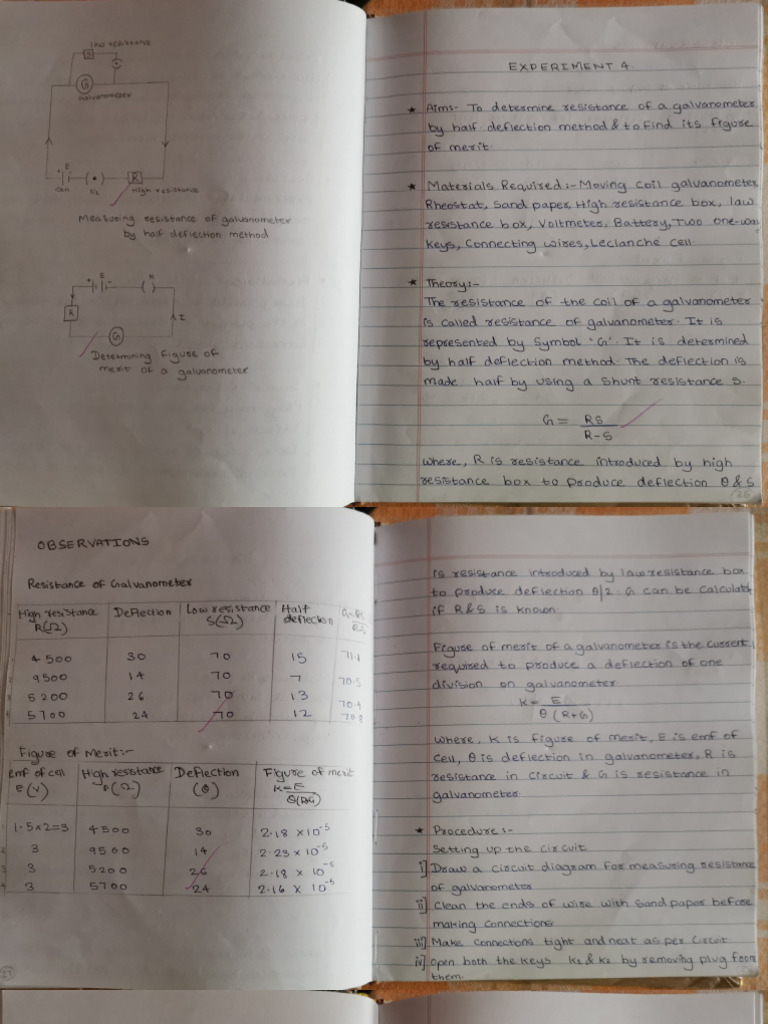 low resistance
S
G
Galvanometer
E
Cell
K2
R
High resistance
Measuring resistance of galvanometer
by half deflection method
E
K
R
I
G
Determining figure of
merit of a galvanometer
EXPERIMENT 4
★ Aim:- To determine resistance of a galvanometer
by half deflection method & to find its figure
of merit.
★ Materials Required:- Moving coil galvanometer,
Rheostat, Sand paper, High resistance box, low
resistance box, Voltmeter, Battery, Two one-way
keys, Connecting wires, Leclanche cell.
★ Theory:-
The resistance of the coil of a galvanometer
is called resistance of galvanometer. It is
represented by symbol 'G'. It is determined
by half deflection method. The deflection is
made half by using a shunt resistance S.
G = RS
R-S
where, R is resistance introduced by high
resistance box to produce deflection θ & S
OBSERVATIONS
Resistance of Galvanometer
High resistance R(Ω) Deflection Low resistance S(Ω) Half deflection
4500 30 70 15 71.1
9500 14 70 7 70.5
5200 26 70 13 70.9
5700 24 70 12 70.8
Figure of Merit:-
emf of cell E(V) High resistance R(Ω) Deflection (θ) Figure of merit K=E/θ(RG)
1 1.5x2=3 4500 30 2.18 x 10⁻⁵
2 3 9500 14 2.23 x 10⁻⁵
3 3 5200 26 2.18 x 10⁻⁵
4 3 5700 24 2.16 x 10⁻⁵
is resistance introduced by low resistance box
to produce deflection θ/2. G can be calculated
if R & S is known.
Figure of merit of a galvanometer is the current
required to produce a deflection of one
division on galvanometer.
K = E
θ(R+G)
where, K is figure of merit, E is emf of
cell, θ is deflection in galvanometer, R is
resistance in circuit & G is resistance in
galvanometer.
★ Procedure:-
Setting up the circuit
i] Draw a circuit diagram for measuring resistance
of galvanometer
ii] Clean the ends of wire with sand paper before
making connections
iii] Make connections tight and neat as per circuit
iv] Open both the keys K1 & K2 by removing plug from
them.